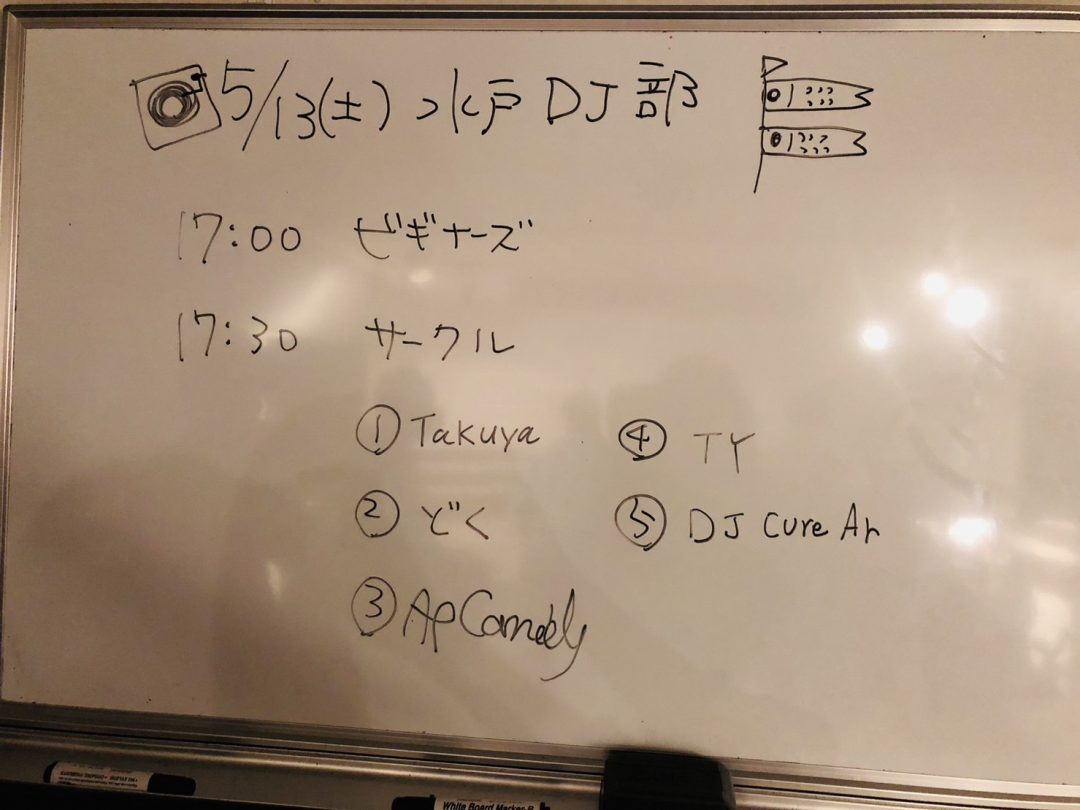 5/13(土) 水戸 DJ部
17:00 ビギナーズ
17:30 サークル
① Takuya
② どく
③ AP Comedy
④ TY
⑤ DJ Cure Ar
White Board Marker-B